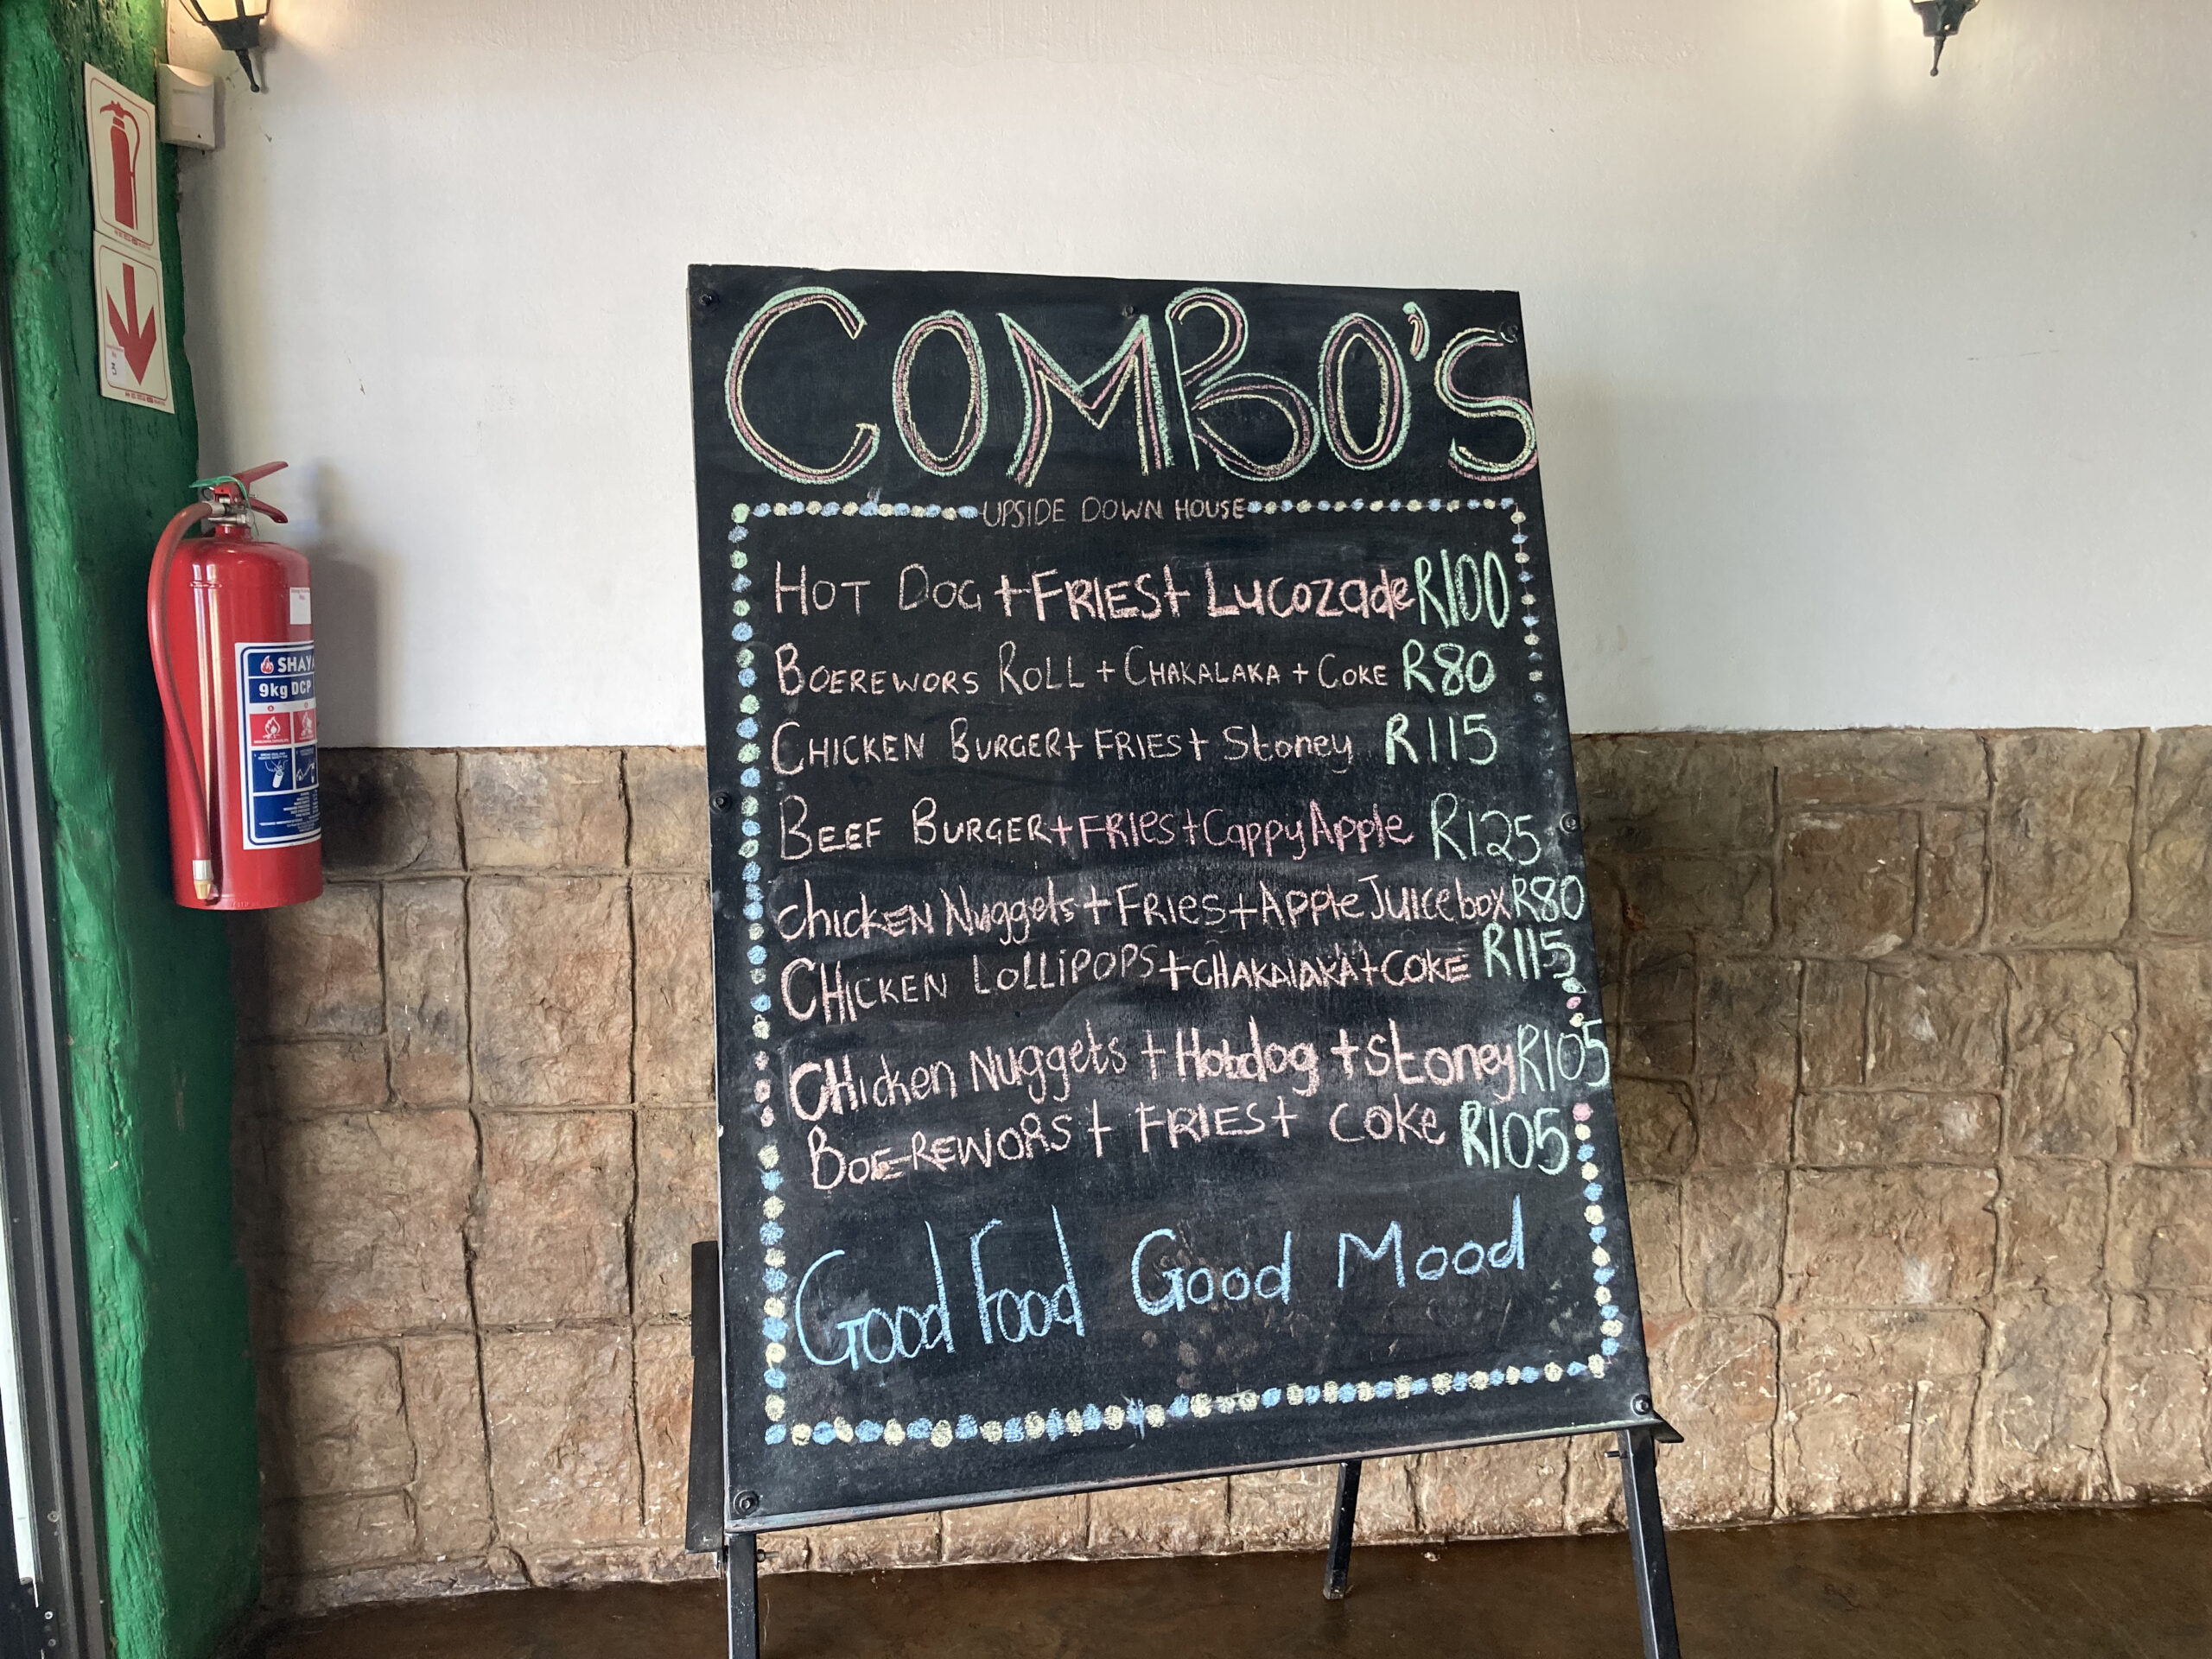 COMBO'S
UPSIDE DOWN HOUSE
HOT DOG + FRIES + Lucozade R100
BOEREWORS ROLL + CHAKALAKA + COKE R80
CHICKEN BURGER + FRIES + Stoney R115
BEEF BURGER + FRIES + Cappy Apple R125
chicken Nuggets + FRies + Apple Juice box R80
CHICKEN LOLLiPOPS + CHAKALAKA + COKE R115
CHicken Nuggets + Hotdog + Stoney R105
BOEREWORS + FRIES + Coke R105
Good Food Good Mood
SHAYA
9kg DCP